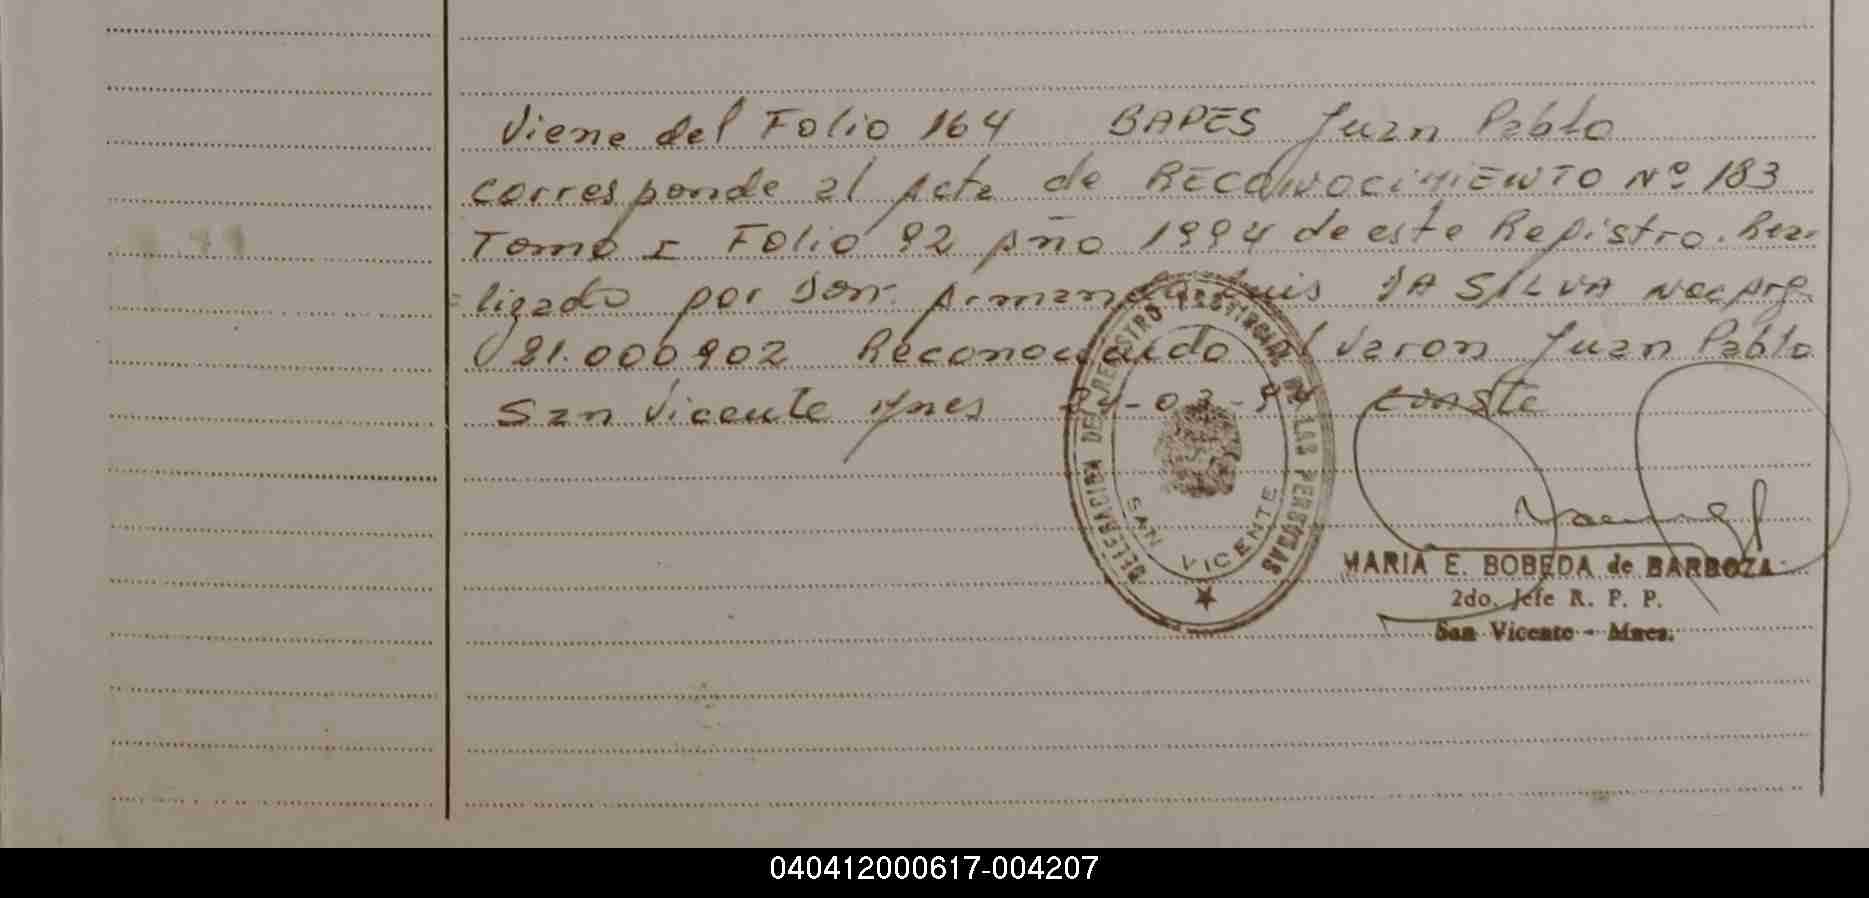 Viene del Folio 164 BAPES Juan Pablo
corresponde al Acta de RECONOCIMIENTO Nº 183
Tomo I Folio 92 Año 1994 de este Registro. Rea
=lizado por Don. Armando Luis DA SILVA Nac Arg.
21.000.902 Reconociendo al Varon Juan Pablo
San Vicente Mnes 24-03-94 conste
DELEGACION DEL REGISTRO PROVINCIAL DE LAS PERSONAS
SAN VICENTE
MARIA E. BOBEDA de BARBOZA
2do. Jefe R. P. P.
San Vicente - Mnes.
040412000617-004207